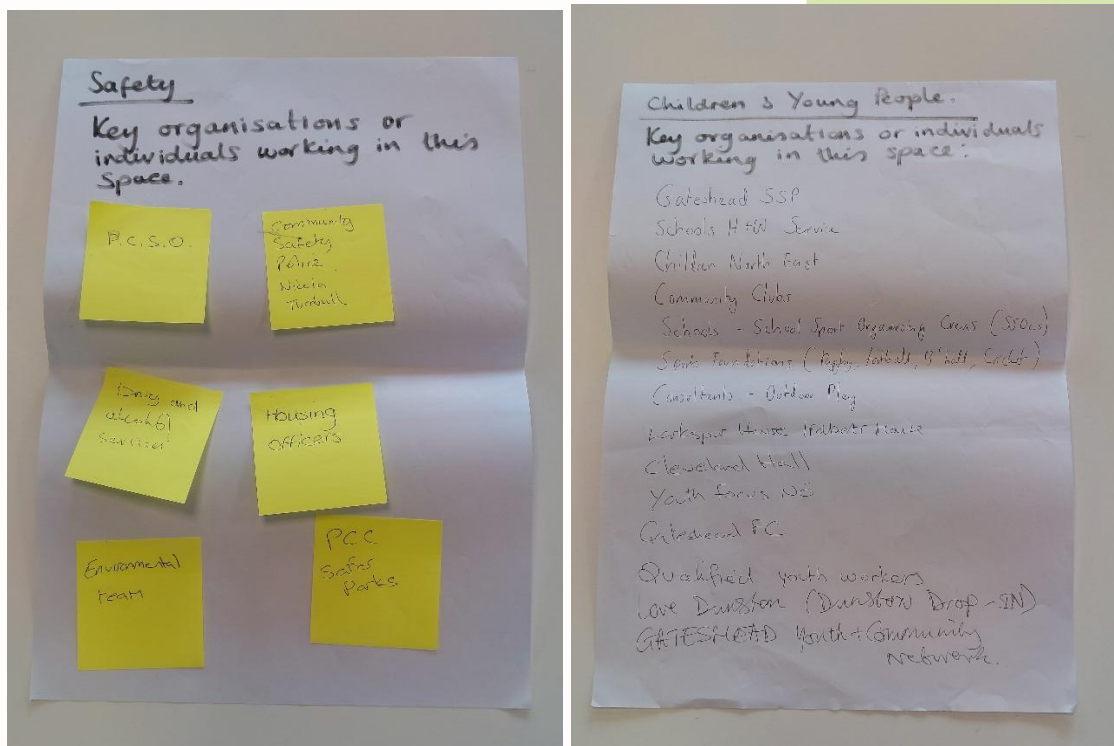 Safety
Key organisations or
individuals working in this
Space.
P.C.S.O.
Community
Safety
Police
Nicola
Turnbull
Drug and
alcohol
Services
Housing
officers
Environmental
team
PCC
Safer
Parks
Children & Young People.
Key organisations or individuals
working in this space:
Gateshead SSP
Schools H+W Service
Children North East
Community Clubs
Schools - School Sport Organising Crews (SSOCs)
Sports Foundations (Rugby, football, B'ball, Cricket)
Consultants - Outdoor Play
Larkspur House
Cleveland Hall
Youth focus NE
Gateshead FC
Qualified youth workers
Love Dunston (Dunston Drop-IN)
GATESHEAD Youth + Community
Network.